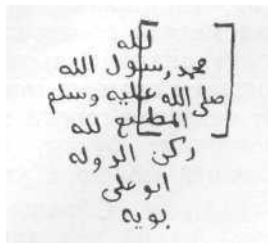 لله
محمد رسول الله
صلى الله عليه وسلم
المطيع لله
ركن الدوله
ابو على
بويه